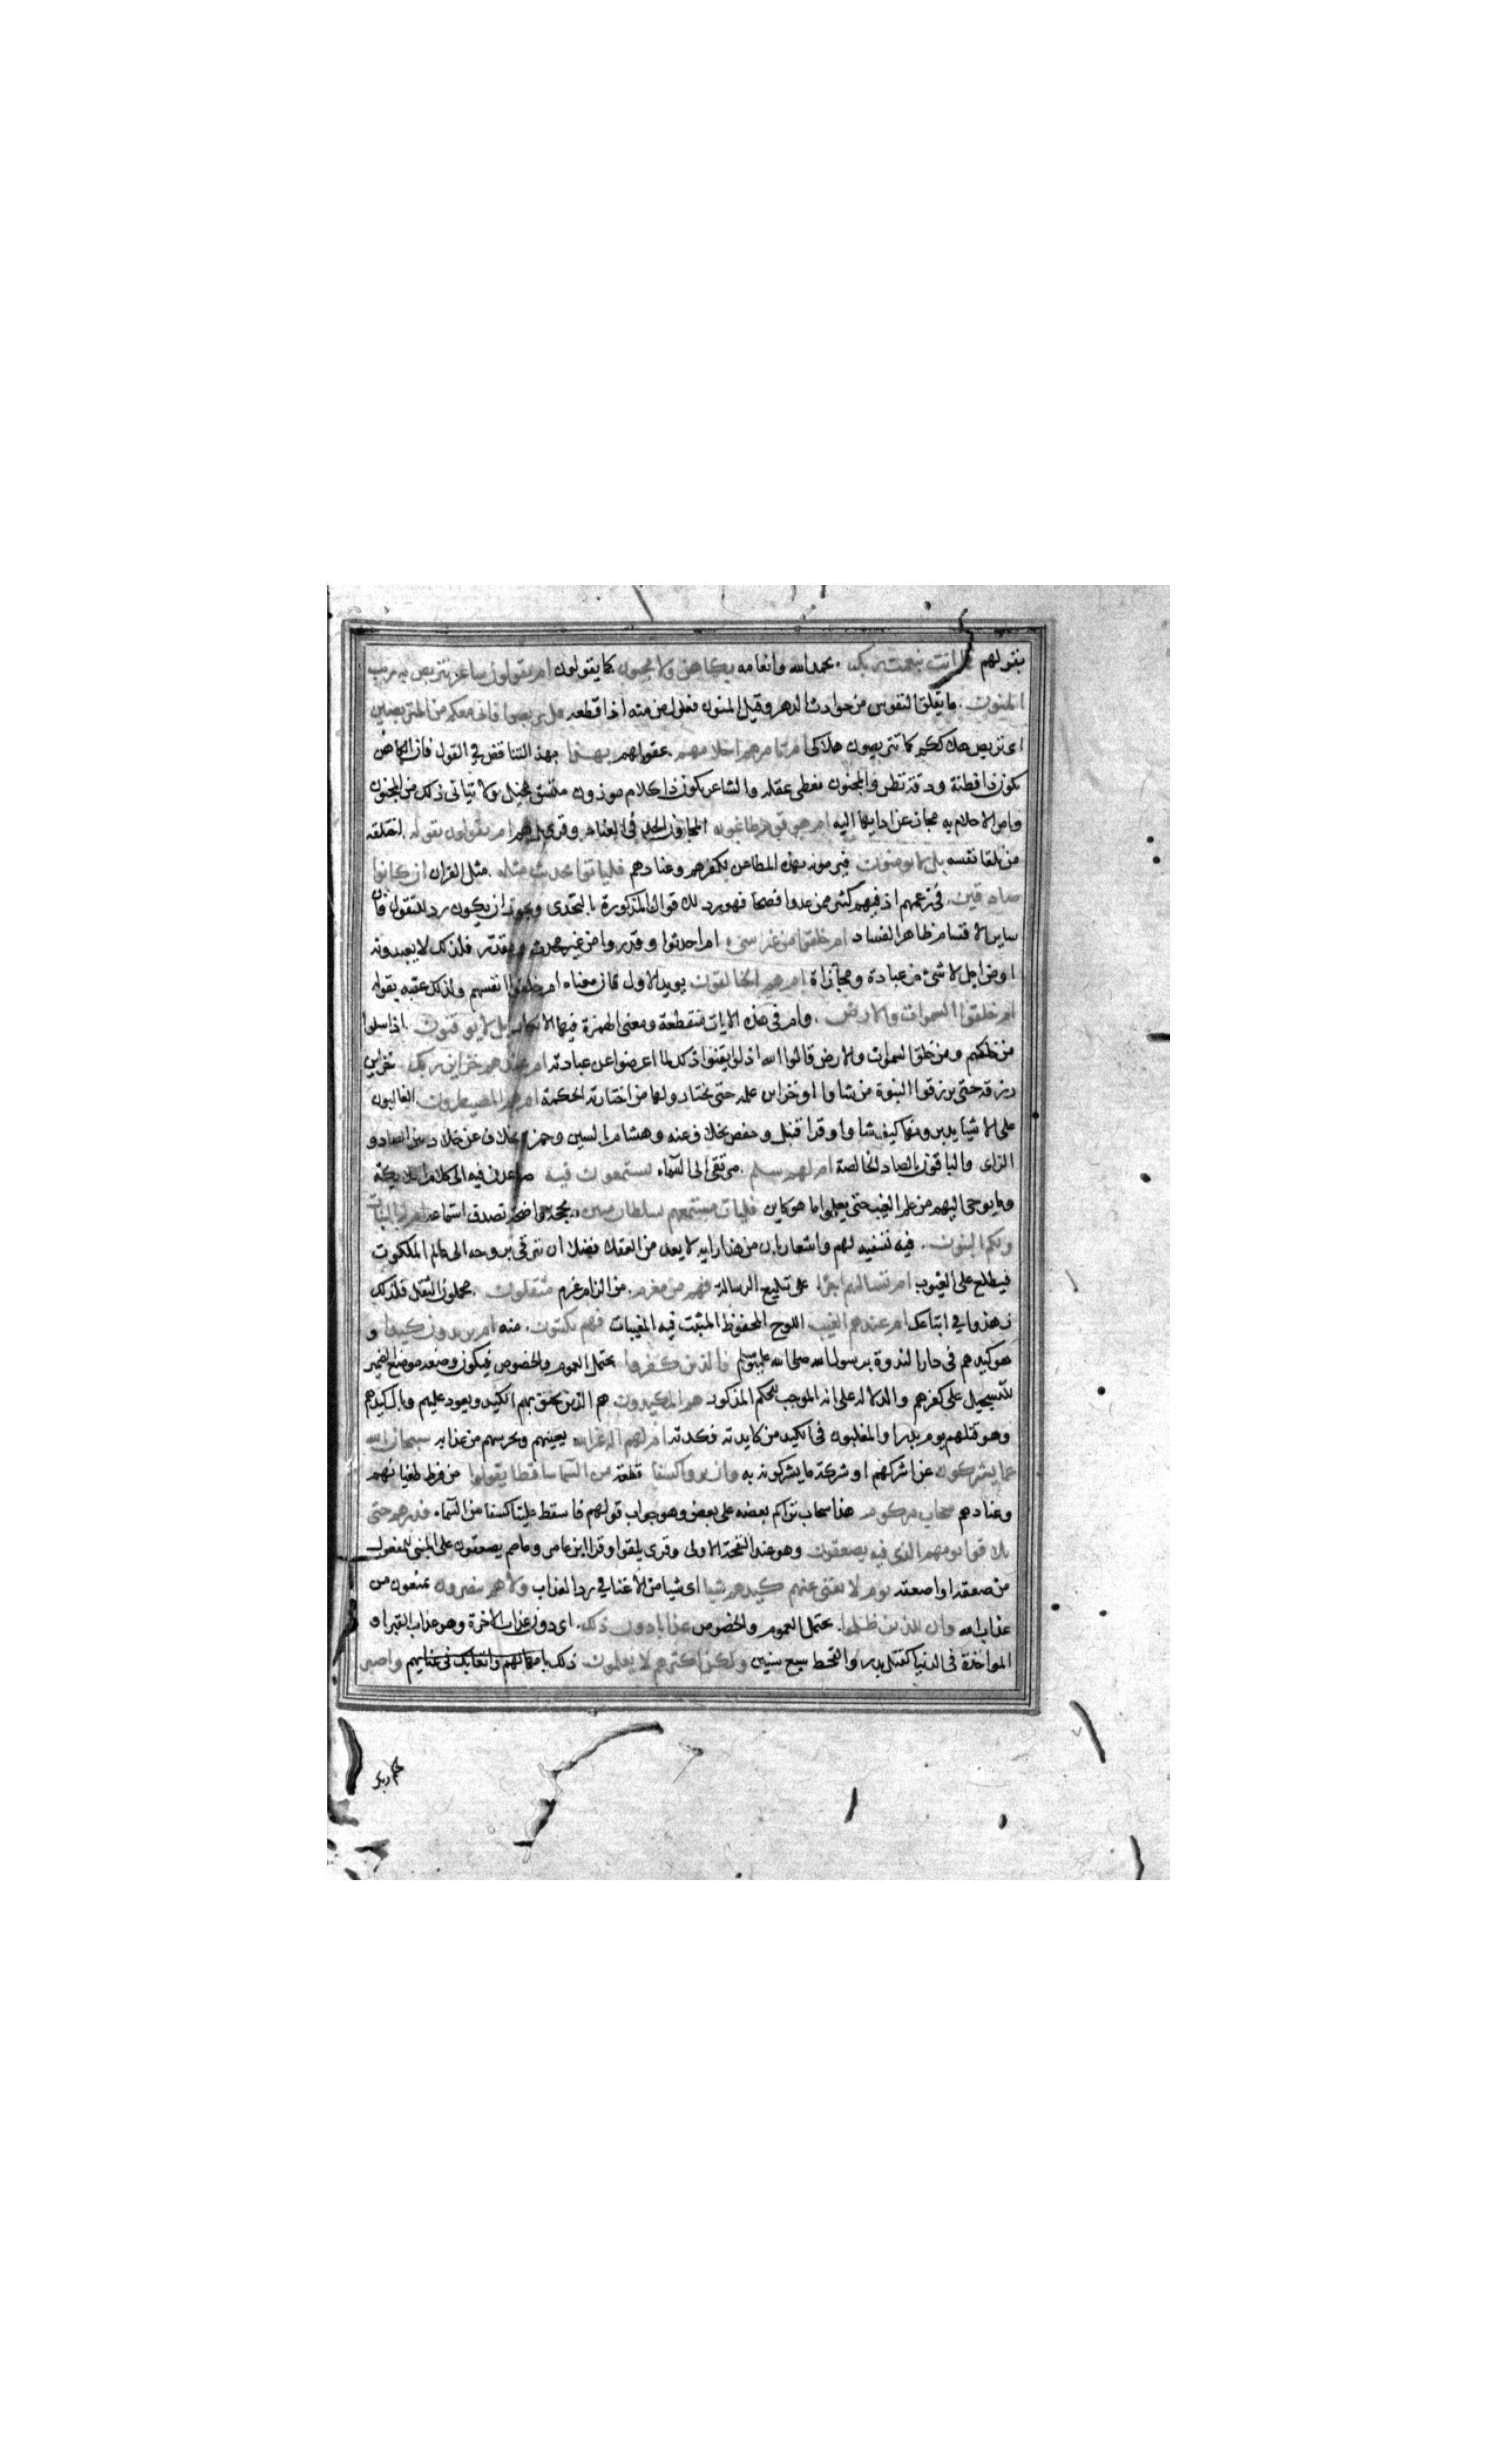 بقولهم فما انت بنعمت ربك بحمد الله وانعامه بكاهن ولا مجنون كما يقولون ام يقولون شاعر نتربص به ريب
المنون ما يقلق النفوس من حوادث الدهر وقيل المنون فعول من منه اذا قطعه قل تربصوا فانى معكم من المتربصين
اى نتربص هلاككم كما تتربصون هلاكى ام تامرهم احلامهم عقولهم بهذا بهذ التناقض في القول فان الكاهن
يكون ذا فطنة ودقة نظر والمجنون مغطى عقله والشاعر يكون ذا كلام موزون متسق مخيل ولا يتاتى ذلك من المجنون
وامر الاحلام به مجاز عن ادايها اليه ام هم قوم طاغون المجاوزن الحد فى العناد وقرى بل هم ام يقولون تقوله اختلقه
من تلقا نفسه بل لا يومنون فيرمونه بهذه المطاعن لكفرهم وعنادهم فلياتوا بحديث مثله مثل القران ان كانوا
صادقين فى زعمهم اذ فيهم كثير ممن عدوا فصحا فهو رد للاقوال المذكورة بالتحدى ويجوز ان يكون رد للتقول فان
ساير الاقسام ظاهر الفساد ام خلقوا من غير شىء ام احدثوا وقدروا من غير محدث ومقدر فلذلك لا يعبدونه
او من اجل لا شئ من عبادة ومجازاة ام هم الخالقون يويد الاول فان معناه ام خلقوا انفسهم ولذلك عقبه بقوله
ام خلقوا السموات والارض وام فى هذه الايات منقطعة ومعنى الهمزة فيها الانكار بل لا يوقنون اذا سئلوا
من خلقكم ومن خلق السموات والارض قالوا الله اذ لو ايقنوا ذلك لما اعرضوا عن عبادته ام عندهم خزاين ربك خزاين
رزقه حتى يرزقوا النبوة من شاوا او خزاين علمه حتى يختاروا لها من اختارته الحكمة ام هم المصيطرون الغالبون
على الاشيا يدبرونها كيف شاوا وقرا قنبل وحفص بخلاف عنه وهشام بالسين وحمزة بخلاف عن خلاد بين الصاد و
الزاى والباقون بالصاد الخالصة ام لهم سلم مرتقى الى السماء يستمعون فيه صاعدين فيه الى كلام الملايكة
وما يوحى اليهم من علم الغيب حتى يعلموا ما هو كاين فليات مستمعهم بسلطان مبين بحجة واضحة تصدق استماعه ام له البنات
ولكم البنون فيه تسفيه لهم واشعار بان من هذا رايه لا يعد من العقلا فضلا ان يترقى بروحه الى عالم الملكوت
فيطلع على الغيوب ام تسالهم اجرا على تبليغ الرسالة فهم من مغرم من الزام غرم مثقلون محملون الثقل فلذلك
زهدوا في اتباعك ام عندهم الغيب اللوح المحفوظ المثبت فيه المغيبات فهم يكتبون منه ام يريدون كيدا و
هو كيدهم فى دار الندوة برسول الله صلى الله عليه وسلم فالذين كفروا يحتمل العموم والخصوص فيكون وضعه موضع الضمير
للتسجيل على كفرهم والدلالة على انه الموجب للحكم المذكور هم المكيدون هم الذين يحيق بهم الكيد ويعود عليهم وبال كيدهم
وهو قتلهم يوم بدر او المغلبون فى الكيد من كايدته فكدته ام لهم اله غير الله يعينهم ويحرسهم من عذابه سبحان الله
عما يشركون عن اشراكهم او شركة ما يشركونه به وان يروا كسفا قطعة من السما ساقطا يقولوا من فرط طغيانهم
وعنادهم سحاب مركوم هذا سحاب تراكم بعضه على بعض وهو جواب قولهم فاسقط علينا كسفا من السماء فذرهم حتى
يلاقوا يومهم الذى فيه يصعقون وهو عند النفخة الاولى وقرى يلقوا وقرا ابن عامر وعاصم يصعقون على المبنى للمفعول
من صعقه او اصعقه يوم لا يغنى عنهم كيدهم شيا اى شيا من الاغنا في رد العذاب ولا هم ينصرون يمنعون من
عذاب الله وان للذين ظلموا يحتمل العموم والخصوص عذابا دون ذلك اى دون عذاب الاخرة وهو عذاب القبر او
المواخذة فى الدنيا كقتل بدر والقحط سبع سنين ولكن اكثرهم لا يعلمون ذلك بامهالهم وابقايك فى عنايهم واصبر
لحكم ربك